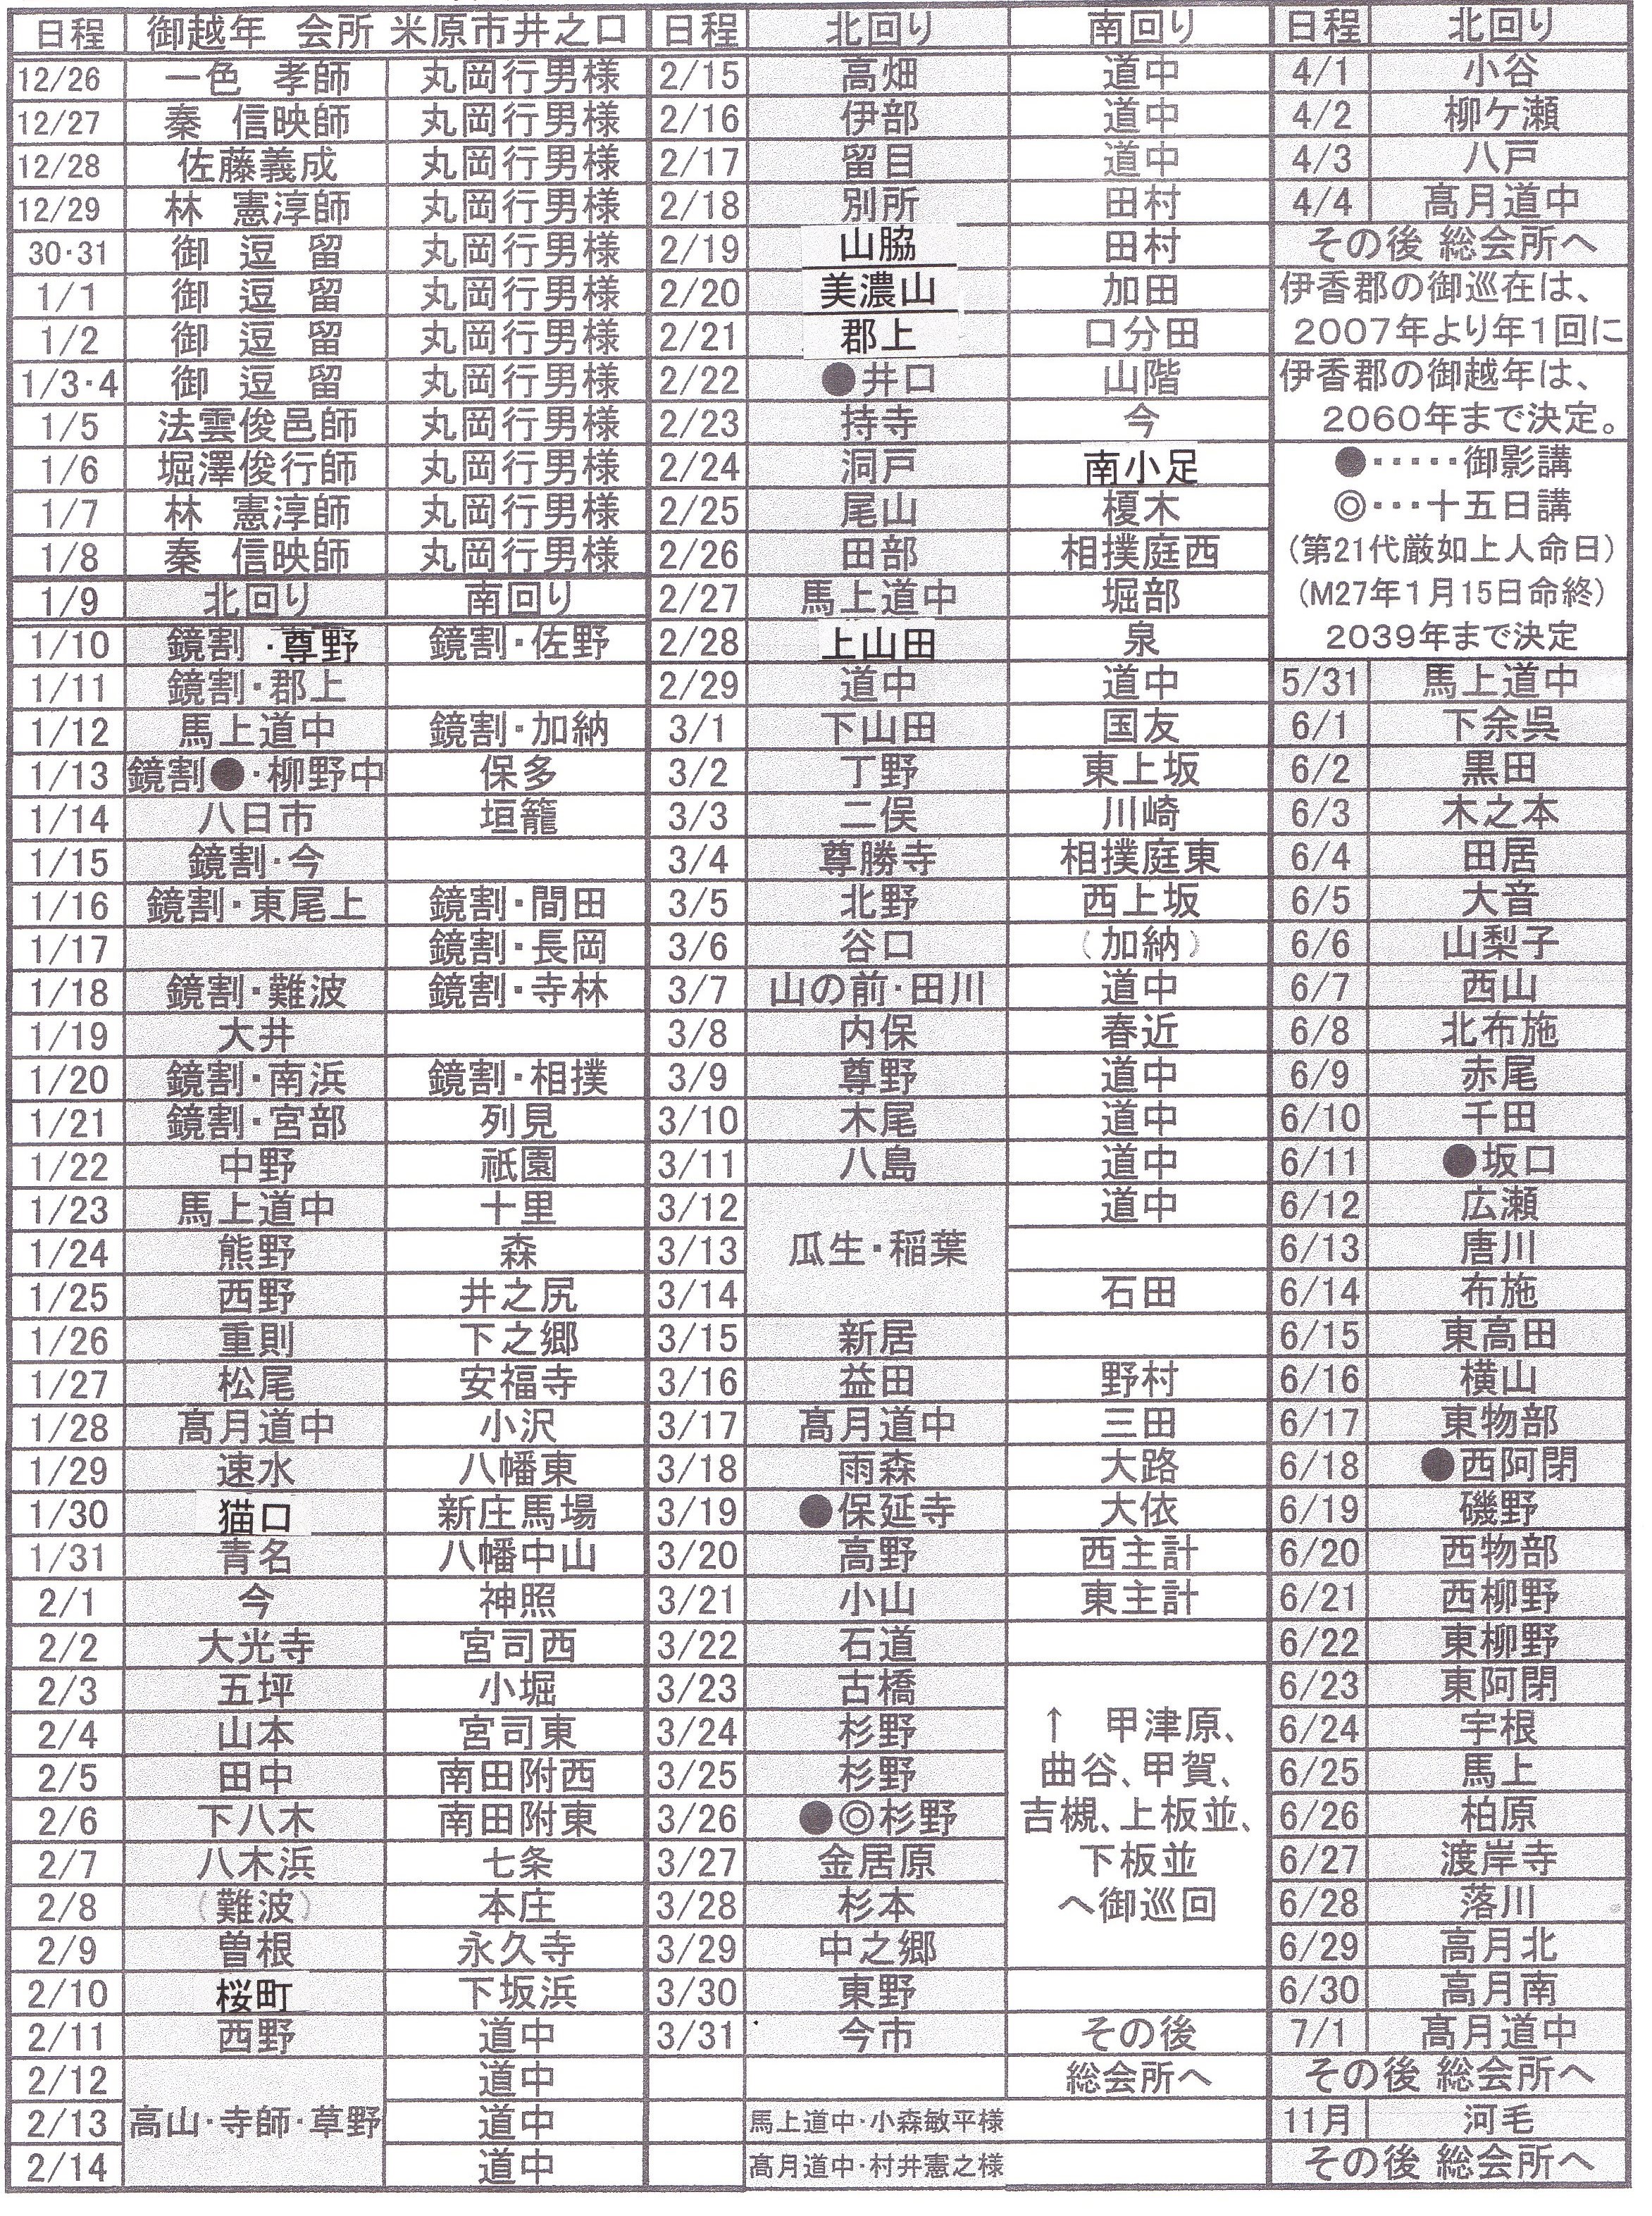 日程 御越年 会所 米原市井之口 日程 北回り 南回り 日程 北回り
12/26 一色 孝師 丸岡行男様 2/15 高畑 道中 4/1 小谷
12/27 秦 信映師 丸岡行男様 2/16 伊部 道中 4/2 柳ケ瀬
12/28 佐藤義成 丸岡行男様 2/17 留目 道中 4/3 八戸
12/29 林 憲淳師 丸岡行男様 2/18 別所 田村 4/4 髙月道中
30・31 御 逗 留 丸岡行男様 2/19 山脇 田村 その後 総会所へ
1/1 御 逗 留 丸岡行男様 2/20 美濃山 加田 伊香郡の御巡在は、
1/2 御 逗 留 丸岡行男様 2/21 郡上 口分田 2007年より年1回に
1/3・4 御 逗 留 丸岡行男様 2/22 ●井口 山階 伊香郡の御越年は、
1/5 法雲俊邑師 丸岡行男様 2/23 持寺 今 2060年まで決定。
1/6 堀澤俊行師 丸岡行男様 2/24 洞戸 南小足 ●・・・・・御影講
1/7 林 憲淳師 丸岡行男様 2/25 尾山 榎木 ◎・・・十五日講
1/8 秦 信映師 丸岡行男様 2/26 田部 相撲庭西 (第21代厳如上人命日)
1/9 北回り 南回り 2/27 馬上道中 堀部 (M27年1月15日命終)
1/10 鏡割・尊野 鏡割・佐野 2/28 上山田 泉 2039年まで決定
1/11 鏡割・郡上 2/29 道中 道中 5/31 馬上道中
1/12 馬上道中 鏡割・加納 3/1 下山田 国友 6/1 下余呉
1/13 鏡割●・柳野中 保多 3/2 丁野 東上坂 6/2 黒田
1/14 八日市 垣籠 3/3 二俣 川崎 6/3 木之本
1/15 鏡割・今 3/4 尊勝寺 相撲庭東 6/4 田居
1/16 鏡割・東尾上 鏡割・間田 3/5 北野 西上坂 6/5 大音
1/17 鏡割・長岡 3/6 谷口 (加納) 6/6 山梨子
1/18 鏡割・難波 鏡割・寺林 3/7 山の前・田川 道中 6/7 西山
1/19 大井 3/8 内保 春近 6/8 北布施
1/20 鏡割・南浜 鏡割・相撲 3/9 尊野 道中 6/9 赤尾
1/21 鏡割・宮部 列見 3/10 木尾 道中 6/10 千田
1/22 中野 祇園 3/11 八島 道中 6/11 ●坂口
1/23 馬上道中 十里 3/12 道中 6/12 広瀬
1/24 熊野 森 3/13 瓜生・稲葉 6/13 唐川
1/25 西野 井之尻 3/14 石田 6/14 布施
1/26 重則 下之郷 3/15 新居 6/15 東高田
1/27 松尾 安福寺 3/16 益田 野村 6/16 横山
1/28 髙月道中 小沢 3/17 髙月道中 三田 6/17 東物部
1/29 速水 八幡東 3/18 雨森 大路 6/18 ●西阿閉
1/30 猫口 新庄馬場 3/19 ●保延寺 大依 6/19 磯野
1/31 青名 八幡中山 3/20 高野 西主計 6/20 西物部
2/1 今 神照 3/21 小山 東主計 6/21 西柳野
2/2 大光寺 宮司西 3/22 石道 6/22 東柳野
2/3 五坪 小堀 3/23 古橋 6/23 東阿閉
2/4 山本 宮司東 3/24 杉野 ↑ 甲津原、 6/24 宇根
2/5 田中 南田附西 3/25 杉野 曲谷、甲賀、 6/25 馬上
2/6 下八木 南田附東 3/26 ●◎杉野 吉槻、上板並、 6/26 柏原
2/7 八木浜 七条 3/27 金居原 下板並 6/27 渡岸寺
2/8 (難波) 本庄 3/28 杉本 へ御巡回 6/28 落川
2/9 曽根 永久寺 3/29 中之郷 6/29 高月北
2/10 桜町 下坂浜 3/30 東野 6/30 高月南
2/11 西野 道中 3/31 今市 その後 7/1 髙月道中
2/12 道中 総会所へ その後 総会所へ
2/13 高山・寺師・草野 道中 馬上道中・小森敏平様 11月 河毛
2/14 道中 髙月道中・村井憲之様 その後 総会所へ